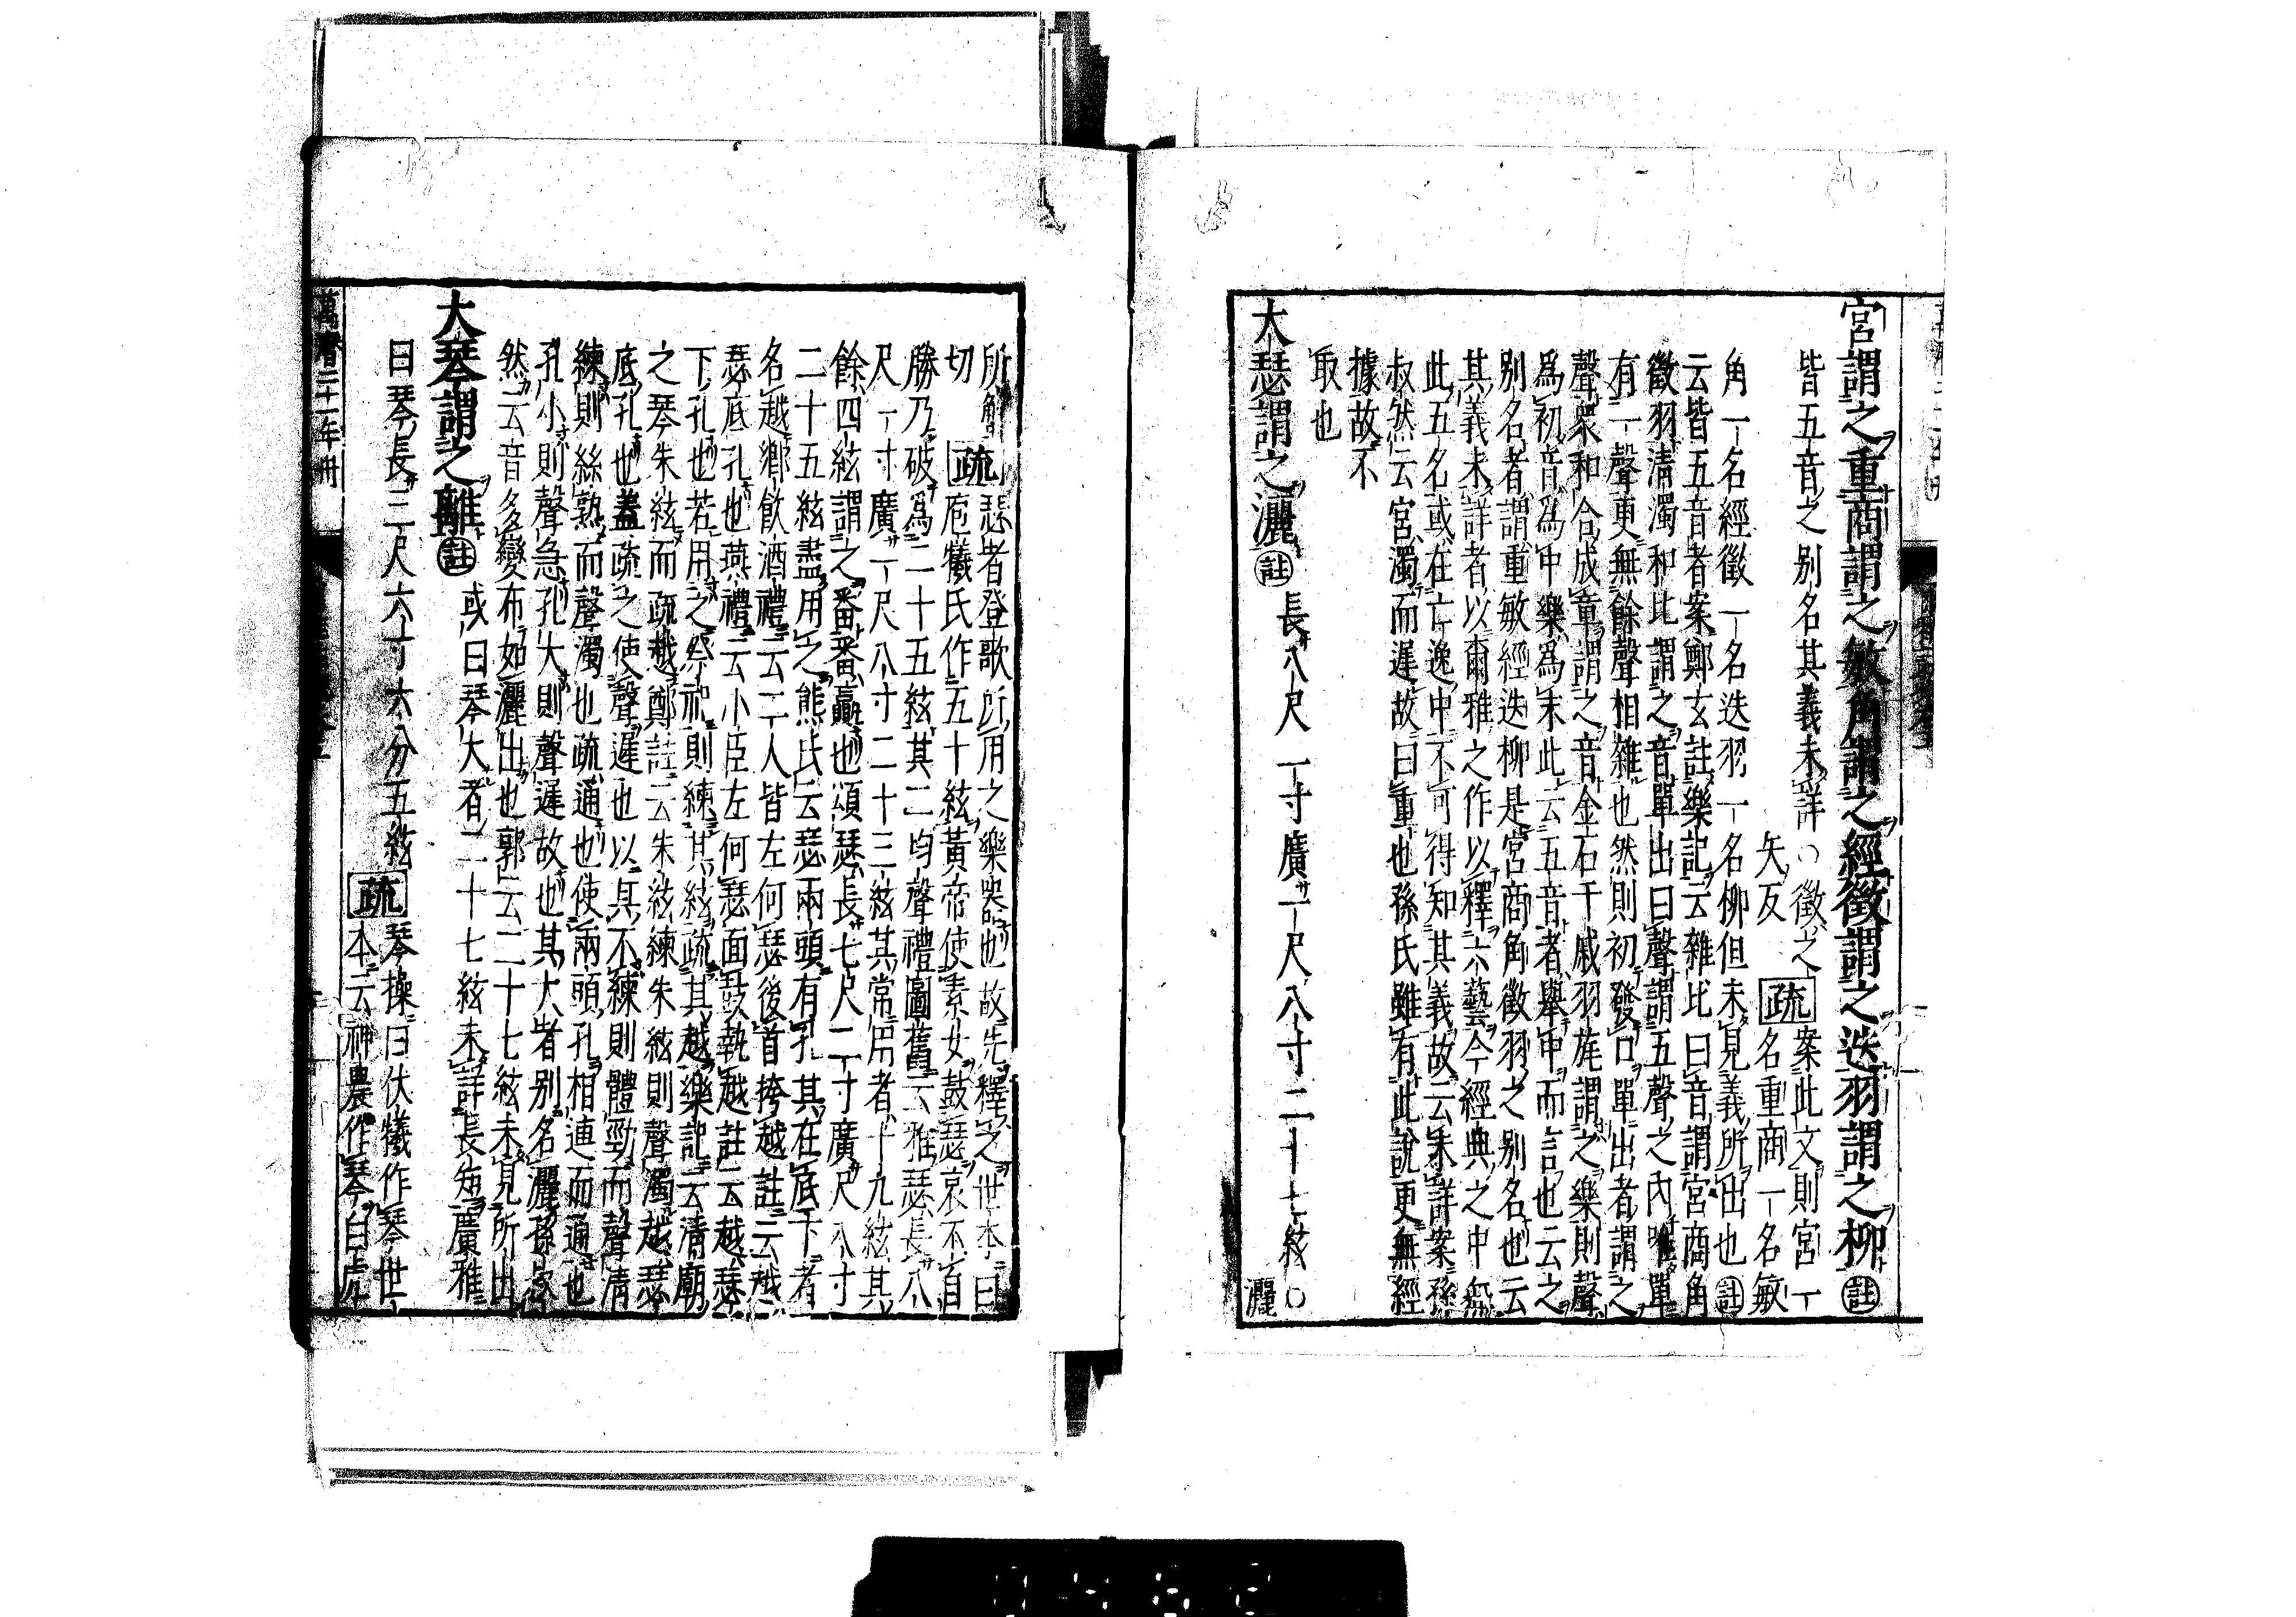 宮謂之重商謂之敏角謂之經徵謂之迭羽謂之柳註
皆五音之別名其義未詳○徵之
矢反
疏
案此文則宮一
名重商一名敏
角一名經徵一名迭羽一名柳但未見義所出也註
云皆五音者案鄭玄註樂記云雜比曰音謂宮商角
徵羽清濁和比謂之音單出曰聲謂五聲之內唯單
有一聲更無餘聲相雜也然則初發口單出者謂之
聲衆和合成章謂之音金石干戚羽旄謂之樂則聲
爲初音爲中樂爲末此云五音者舉中而言也云之
別名者謂重敏經迭柳是宮商角徵羽之別名也云
其義未詳者以爾雅之作以釋六藝今經典之中無
此五名或在亡逸中不可得知其義故云未詳案孫
叔然云宮濁而遲故曰重也孫氏雖有此說更無經
據故不
取也
大瑟謂之灑註
長八尺一寸廣一尺八寸二十七絃○
灑
所蟹
切
疏
瑟者登歌所用之樂器也故先釋之世本曰
庖犧氏作五十絃黃帝使素女鼓瑟哀不自
勝乃破爲二十五絃其二均聲禮圖舊云雅瑟長八
尺一寸廣一尺八寸二十三絃其常用者十九絃其
餘四絃謂之番番贏也頌瑟長七尺二寸廣尺八寸
二十五絃盡用之熊氏云瑟兩頭有孔其在底下者
名越鄉飲酒禮云二人皆左何瑟後首挎越註云越
瑟底孔也燕禮云小臣左何瑟面鼓執越註云越瑟
下孔也若用之祭祀則練其絃疏其越樂記云清廟
之琴朱絃而疏越鄭註云朱絃練朱絃則聲濁越瑟
底孔也蓋疏之使聲遲也以其不練則體勁而聲清
練則絲熟而聲濁也疏通也使兩頭孔相連而通也
孔小則聲急孔大則聲遲故也其大者別名灑孫
然云音多變布如灑出也郭云二十七絃未見所出
大琴謂之離註
或曰琴大者二十七絃未詳長短廣雅
曰琴長三尺六寸六分五絃
疏
琴操曰伏犧作琴世
本云神農作琴白虎
萬曆二十一年刊